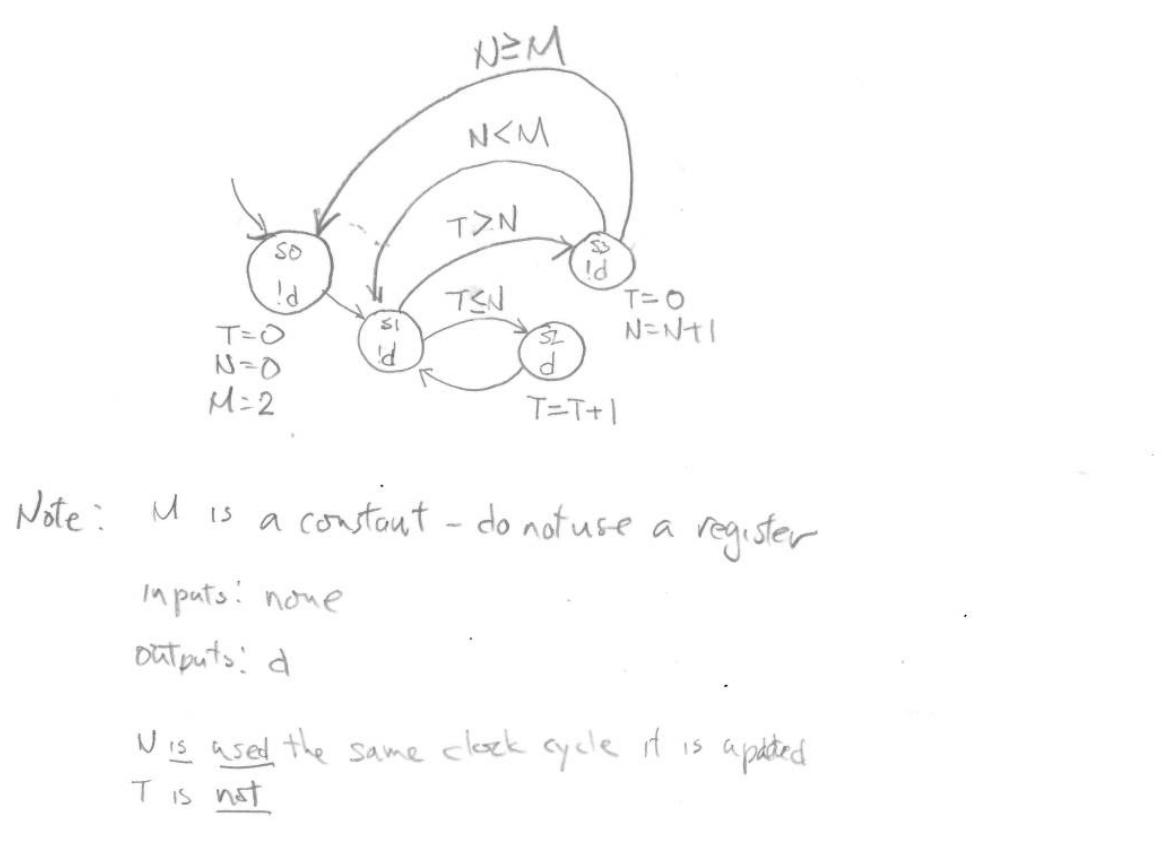 N≥M
N<M
T>N
S0
!d
S3
!d
T≤N
T=0
N=N+1
S1
!d
S2
d
T=0
N=0
M=2
T=T+1
Note: M is a constant - do not use a register
inputs: none
outputs: d
N is used the same clock cycle it is updated
T is not